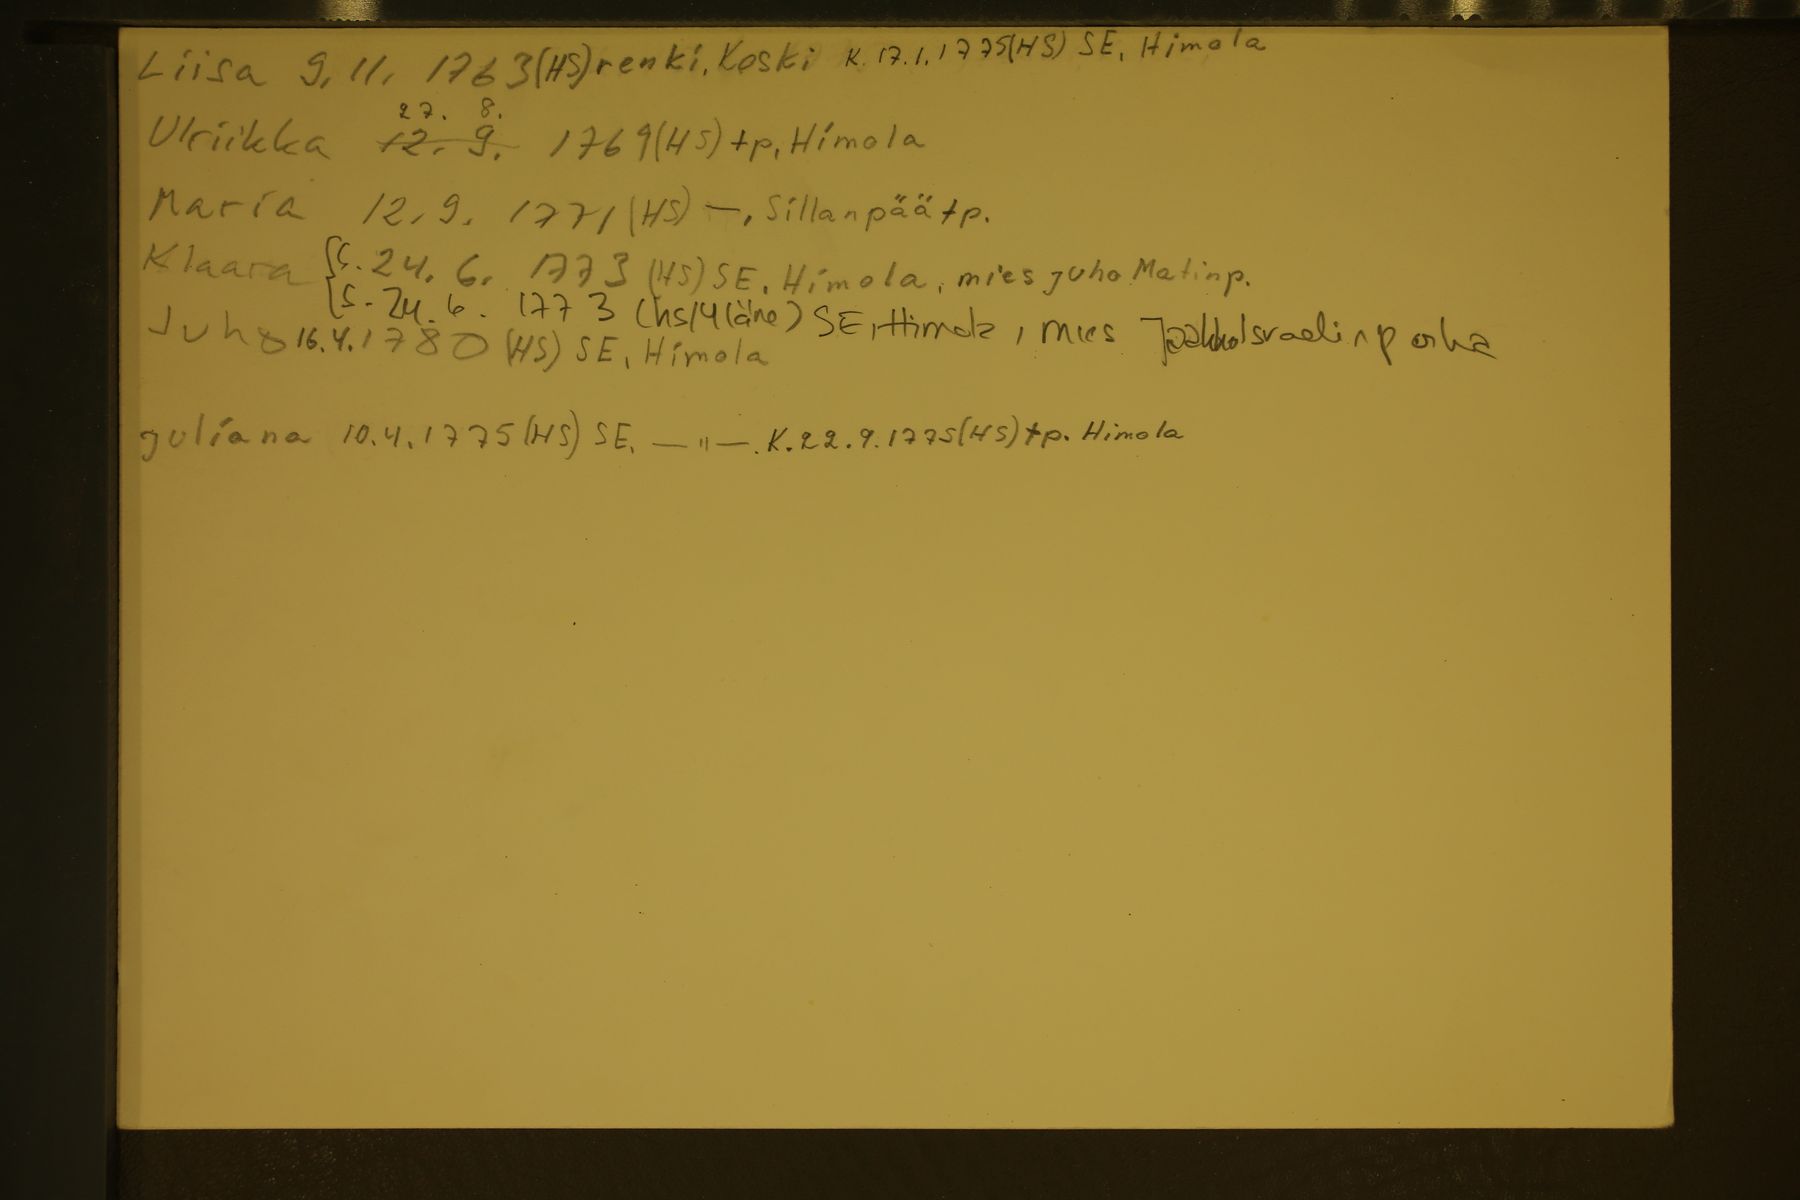 Liisa 9.11. 1763(HS) renki, Koski K. 17.1.1775(HS) SE, Himola
27. 8.
Ulriikka 12. 9. 1769(HS) tp, Himola
Maria 12.9. 1771(HS) —, Sillanpää tp.
Klaara S. 24. 6. 1773 (HS) SE, Himola, mies Juho Matinp.
S. 24. 6. 1773 (hs/Yläne) SE, Himola, mies Jaakko Israelinp
Juho 16.4.1780 (HS) SE, Himola
Juliana 10.4.1775(HS) SE, —"—. K.22.9.1775(HS) tp. Himola